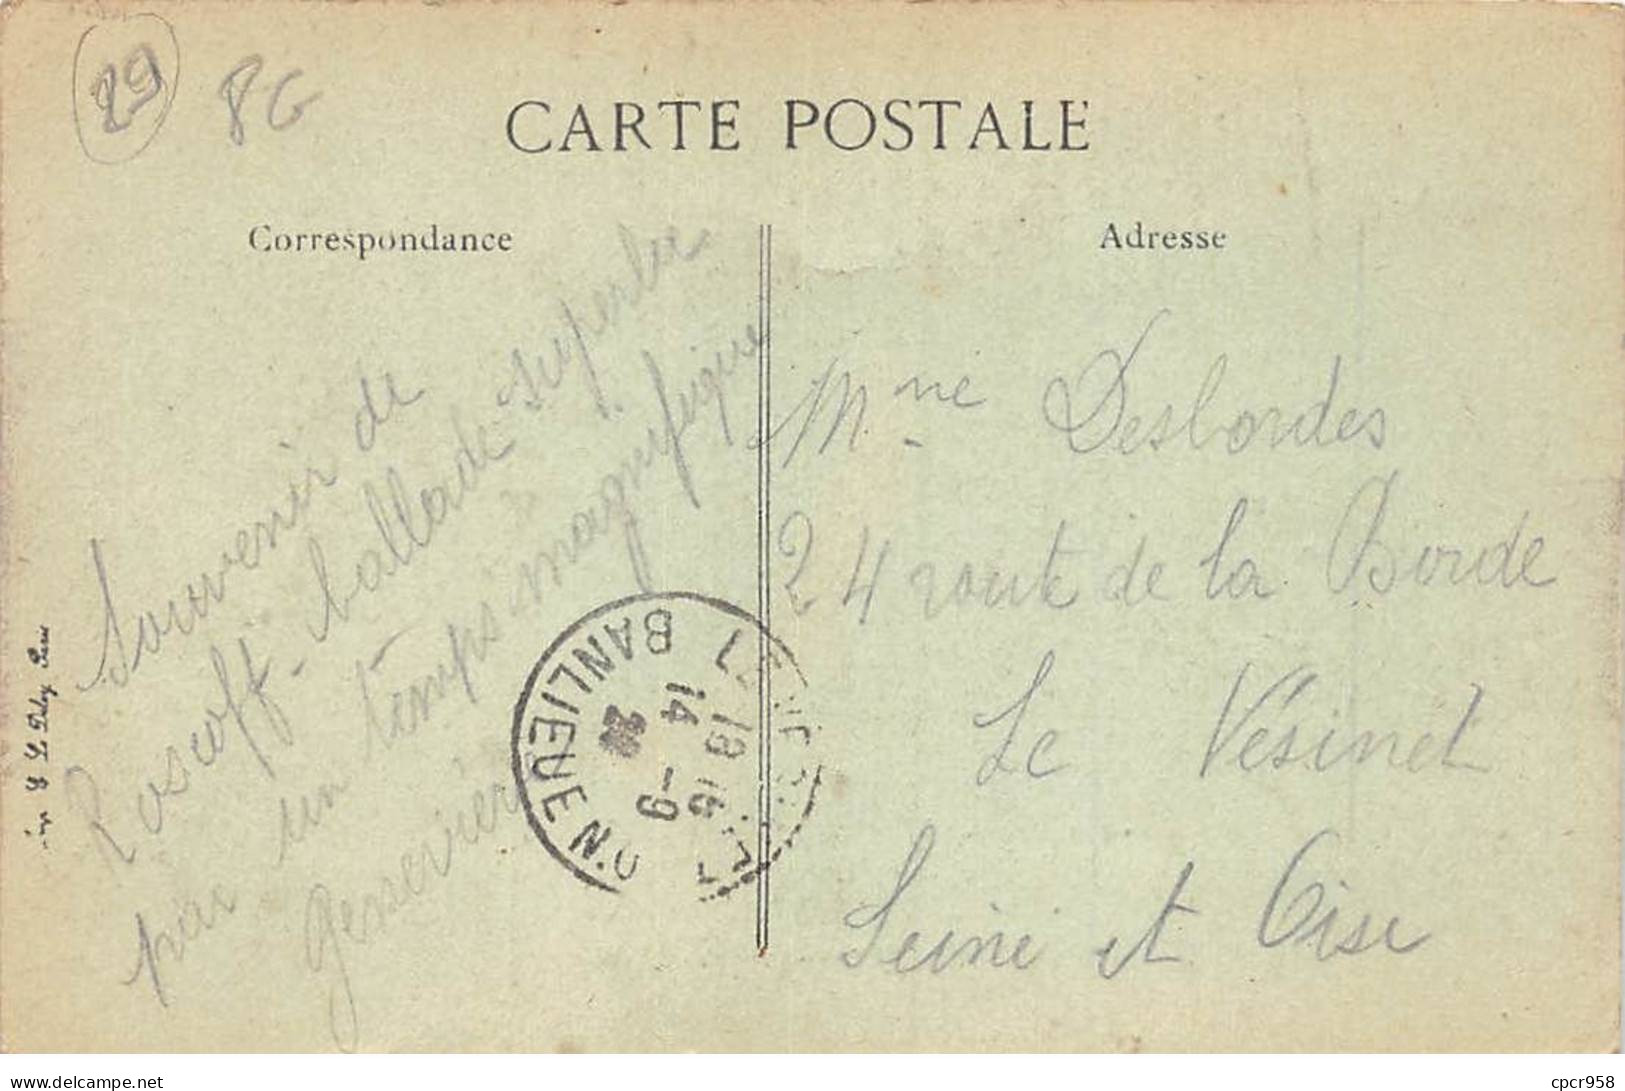 29
8G
CARTE POSTALE
Correspondance
Adresse
Souvenir de
Roscoff. ballade superbe
par un temps magnifique
Mme Desbordes
24 route de la Borde
Le Vésinet
Seine et Oise
BANLIEUE N.
18 15
14 -9
Delcampe.net
cpcr958